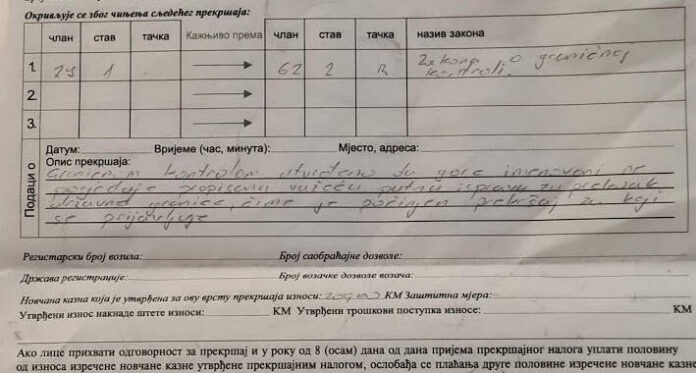 Окривљује се због чињења сљедећег прекршаја:
члан став тачка Кажњиво према члан став тачка назив закона
1. 29 1 62 2 Zakona o graničnoj
kontroli.
2.
3.
Подаци о
Датум: Вријеме (час, минута): Мјесто, адреса:
Опис прекршаја:
Graničnom kontrolom utvrđeno da gore imenovani ne
posjeduje propisanu važeću putnu ispravu za prelazak
državne granice, čime je počinjen prekršaj za koji
se prijavljuje
Регистарски број возила: Број саобраћајне дозволе:
Држава регистрације: Број возачке дозволе возача:
Новчана казна која је утврђена за ову врсту прекршаја износи: КМ Заштитна мјера:
Утврђени износ накнаде штете износи: КМ Утврђени трошкови поступка износе: КМ
Ако лице прихвати одговорност за прекршај и у року од 8 (осам) дана од дана пријема прекршајног налога уплати половину
од износа изречене новчане казне утврђене прекршајним налогом, ослобађа се плаћања друге половине изречене новчане казне